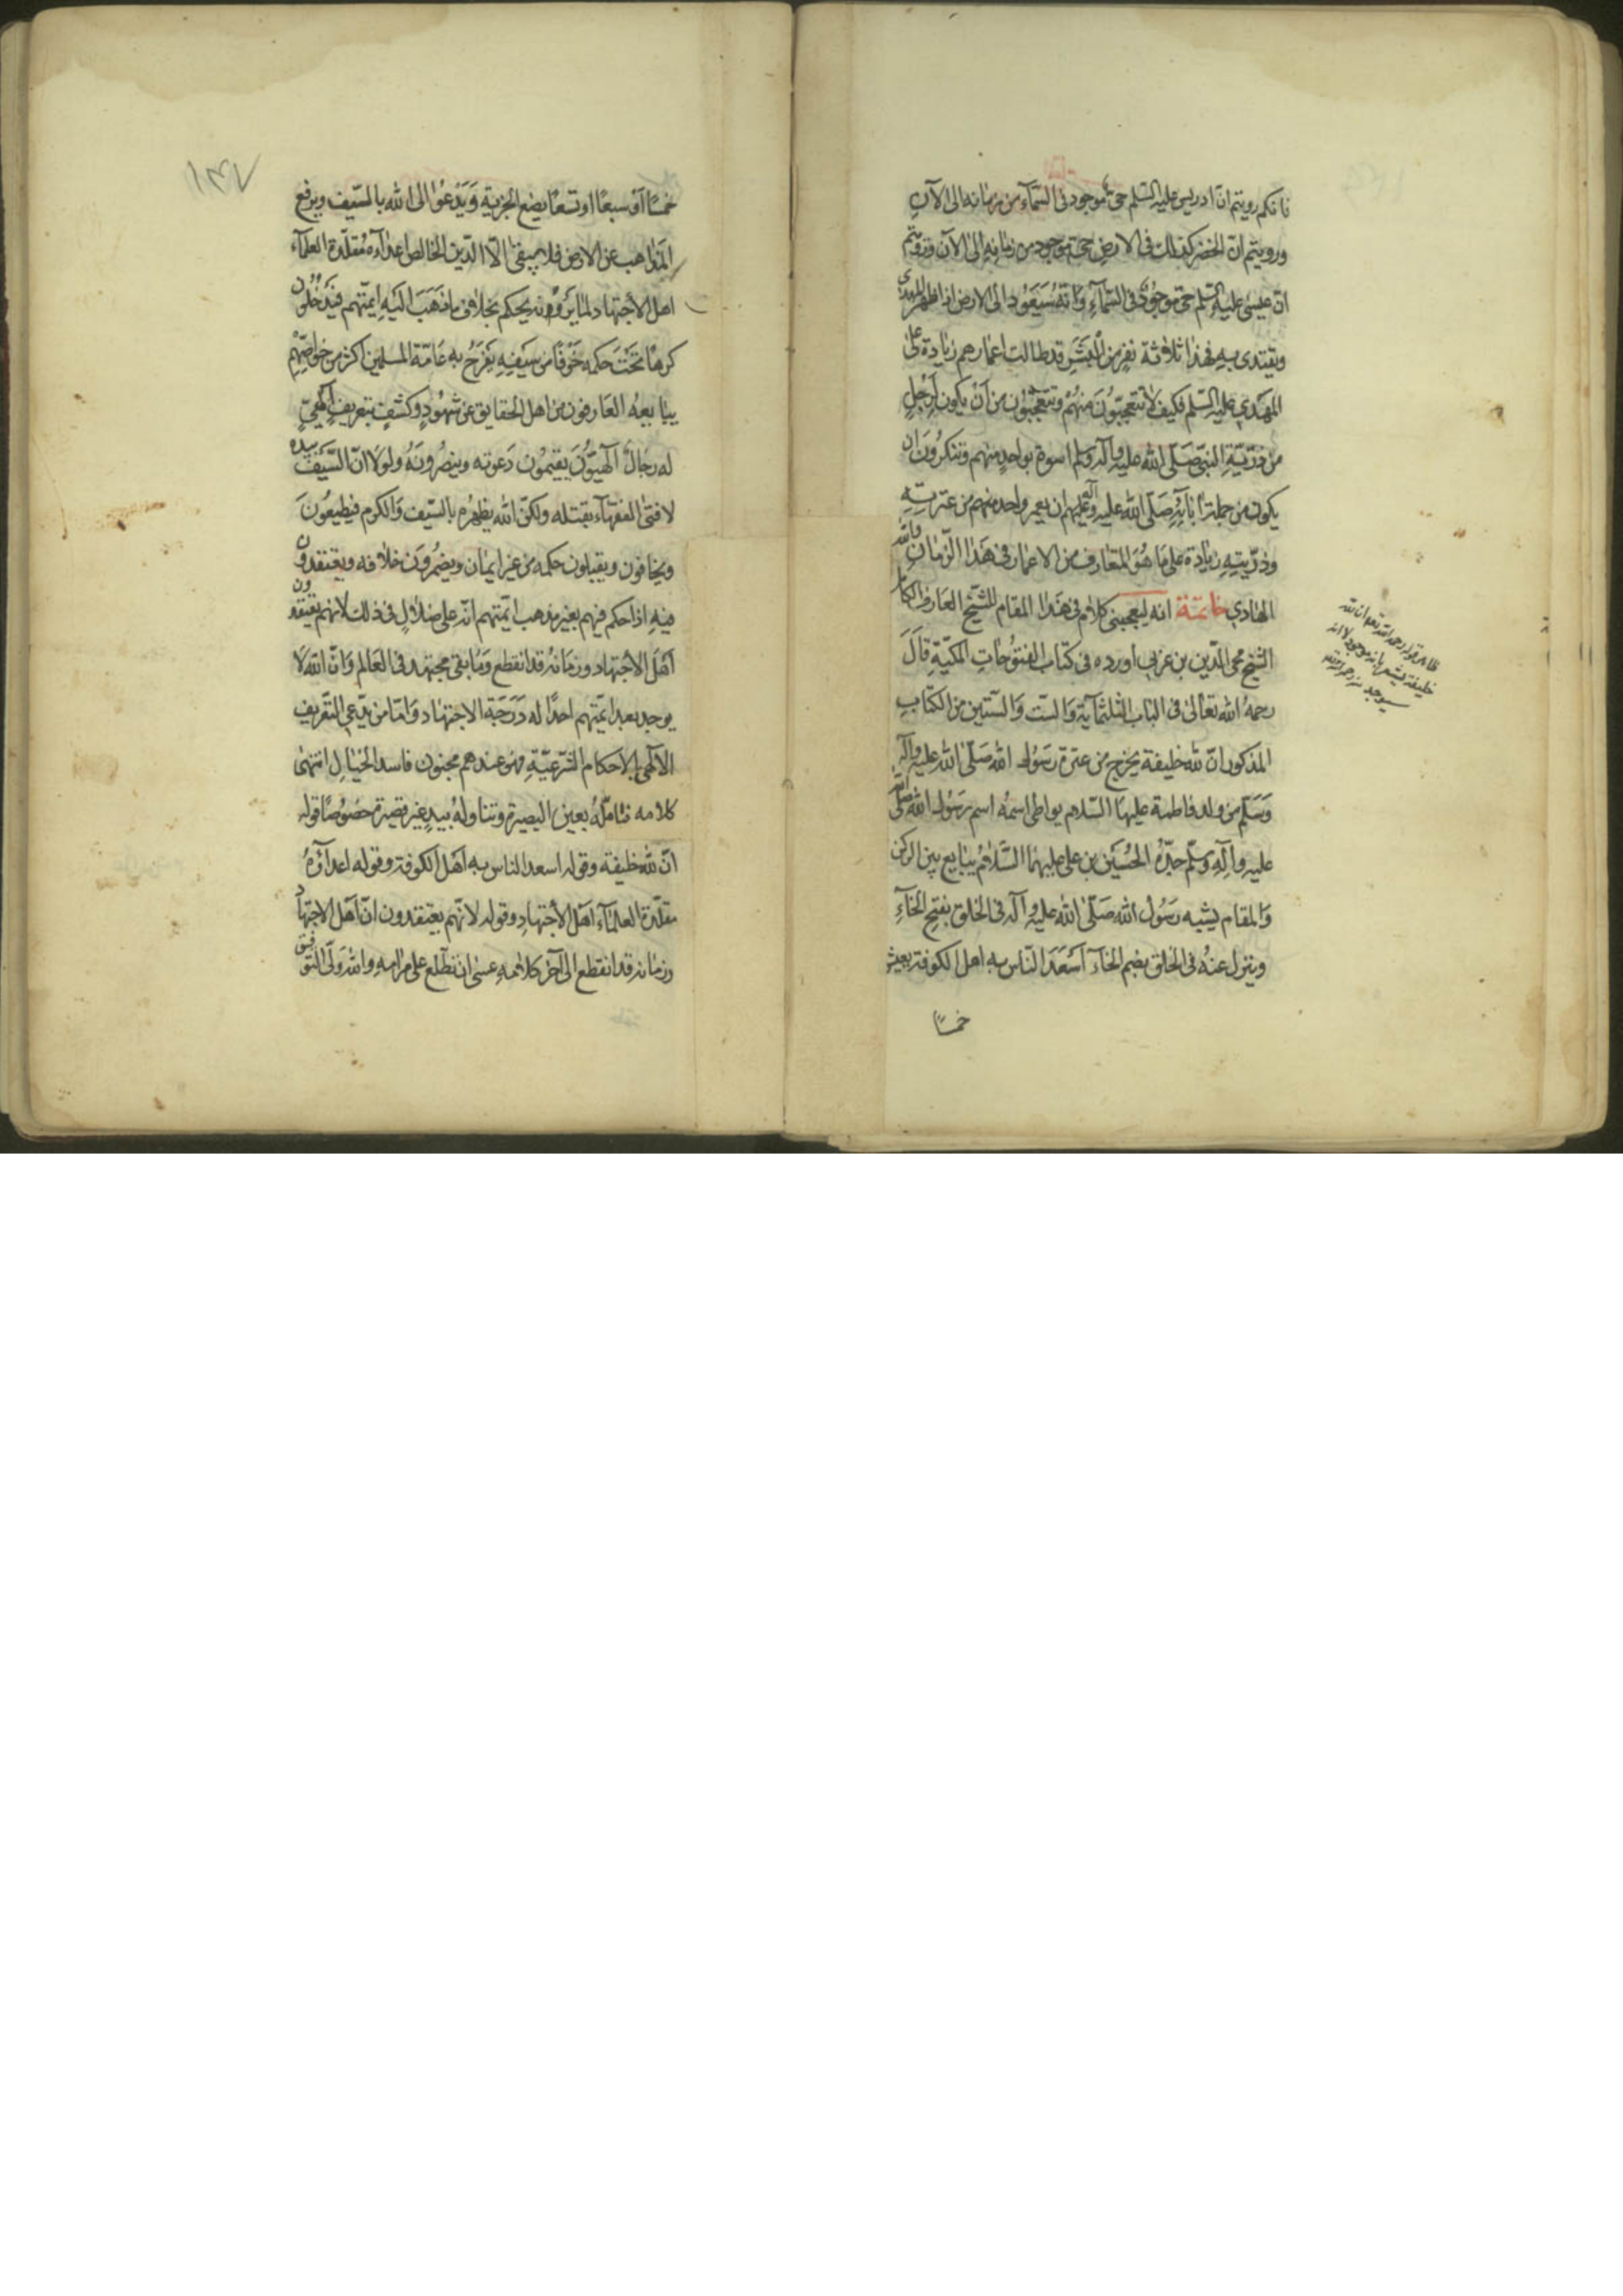 فانكم رويتم ان ادريس عليه السلم حيّ موجود فى السّمآء من زمانه الى الآن
ورويتم انّ الخضر كذلك فى الارض حيّ موجود من زمانه الى الآن ورويتم
انّ عيسى عليه السلم حيّ موجود فى السّمآء وانّه سَيَعُود الى الارض اذا ظهر المهدي
ويقتدى به فهذا ثلاثة نفر من البَشَر قد طالت اعمارهم زيادة على
المهدي عليه السّلم فكيف لا تتعجّبونَ منهم وتتعجّبون من ان يكون لرجل
من ذرّيّة النبى صَلّى الله عليه وآله وسلم اسوة بواحد منهم وتنكرون ان
يكون من جملة آياته صَلّى الله عليه وآله وعليهم ان يعمر واحد منهم من عترته
وذرّيته زيادة على مَا هُوَ المتعارف من الاعمار فى هَذا الزّمان والله
الهادي خاتمة انه ليعجبنى كلام فى هَذا المقام للشّيخ العارف الكامل
الشيخ محي الدّين بن عربي اورده فى كتاب الفتوُحات المكيّة قالَ
رحمهُ الله تعالى فى الباب الثلثمآية وَالستّ وَالستّين من الكتاب
المذكور انّ لله خليفة يخرج من عترة رَسُول الله صَلّى الله عليه وآله
وَسَلّم من ولد فاطمة عليها السّلام يواطى اسمُه اسم رَسُول الله صلّى الله
عليه وآله وسلّم جدّهُ الحُسَين بن على عليهما السَّلام يبايع بين الركن
وَالمقام يشبه رَسُول الله صَلّى الله عليه وآله فى الخَلق بفتح الخآءِ
وينزل عنهُ فى الخلق بضم الخآء اَسْعَدَ النّاس به اهل الكوفة يعيش
خمسًا
قوله رحمه الله تعالى ان لله
خليفة يشعر بانه موجود لا انه
سيوجد
۱۴۷
خمسًا اَوْ سبعًا او تسعًا يضع الجزية وَيَدْعُوا الى الله بالسّيف ويرفع
المَذاهب عن الارض فلا يبقى الّا الدّين الخالص اعدآءه مُقلّدة العلمآء
اهل الاجتهاد لما يَرَوْنه يحكم بخلاف ما ذَهَبَ اليَه ايمّتهم فيَدخُلُون
كرهًا تَحْتَ حكمه خَوْفًا من سَيفِه يَفرَحُ به عَامّة المسلمين اكثر من خواصّهم
يبايعهُ العَارفون من اهل الحقايق عن شهُودٍ وكشفٍ بتعريفٍ آلهيّ
له رجالٌ آلهيّونَ يقيمُون دَعوته وينصُرونَهُ ولولَا انّ السّيَفَ بيده
لافتى الفقهآء بقتله ولكنّ الله يظهُره بالسّيف وَالكرم فيطيعُونَ
ويخافون ويقبلون حكمه من غير ايمان ويضمُروَن خلافه ويعتقدون
فيه اذا حكم فيهم بغير مذهب ايمّتهم انّه على ضلال فى ذلك لانهم يعتقدون
اَهْلَ الاجتهاد وزمَانه قد انقطع وَمَا بقى مجتهد فى العَالم وَانّ الله لا
يوجد بعد ايمّتهم احدًا له دَرَجَة الاجتهاد وَامّا من يدّعي التّعريف
الآلهي بالاحكام الشّرعيّة فهو عندهم مجنون فاسد الخيال انتهى
كلامه فتامّلهُ بعين البصيرة وتناولهُ بيدٍ غير قصيرة خصُوصًا قوله
انّ لله خليفة وقوله اسعد الناس به اَهْل الكوفة وقوله اعدآؤهُ
مقلّدة العلمَآء اهل الاجتهاد وقوله لانّهم يعتقدون انّ اَهْل الاجتهاد
وزمانه قد انقطع الى آخر كلامه عسى ان تطّلع على مرامه والله وَلّى التّوفيق